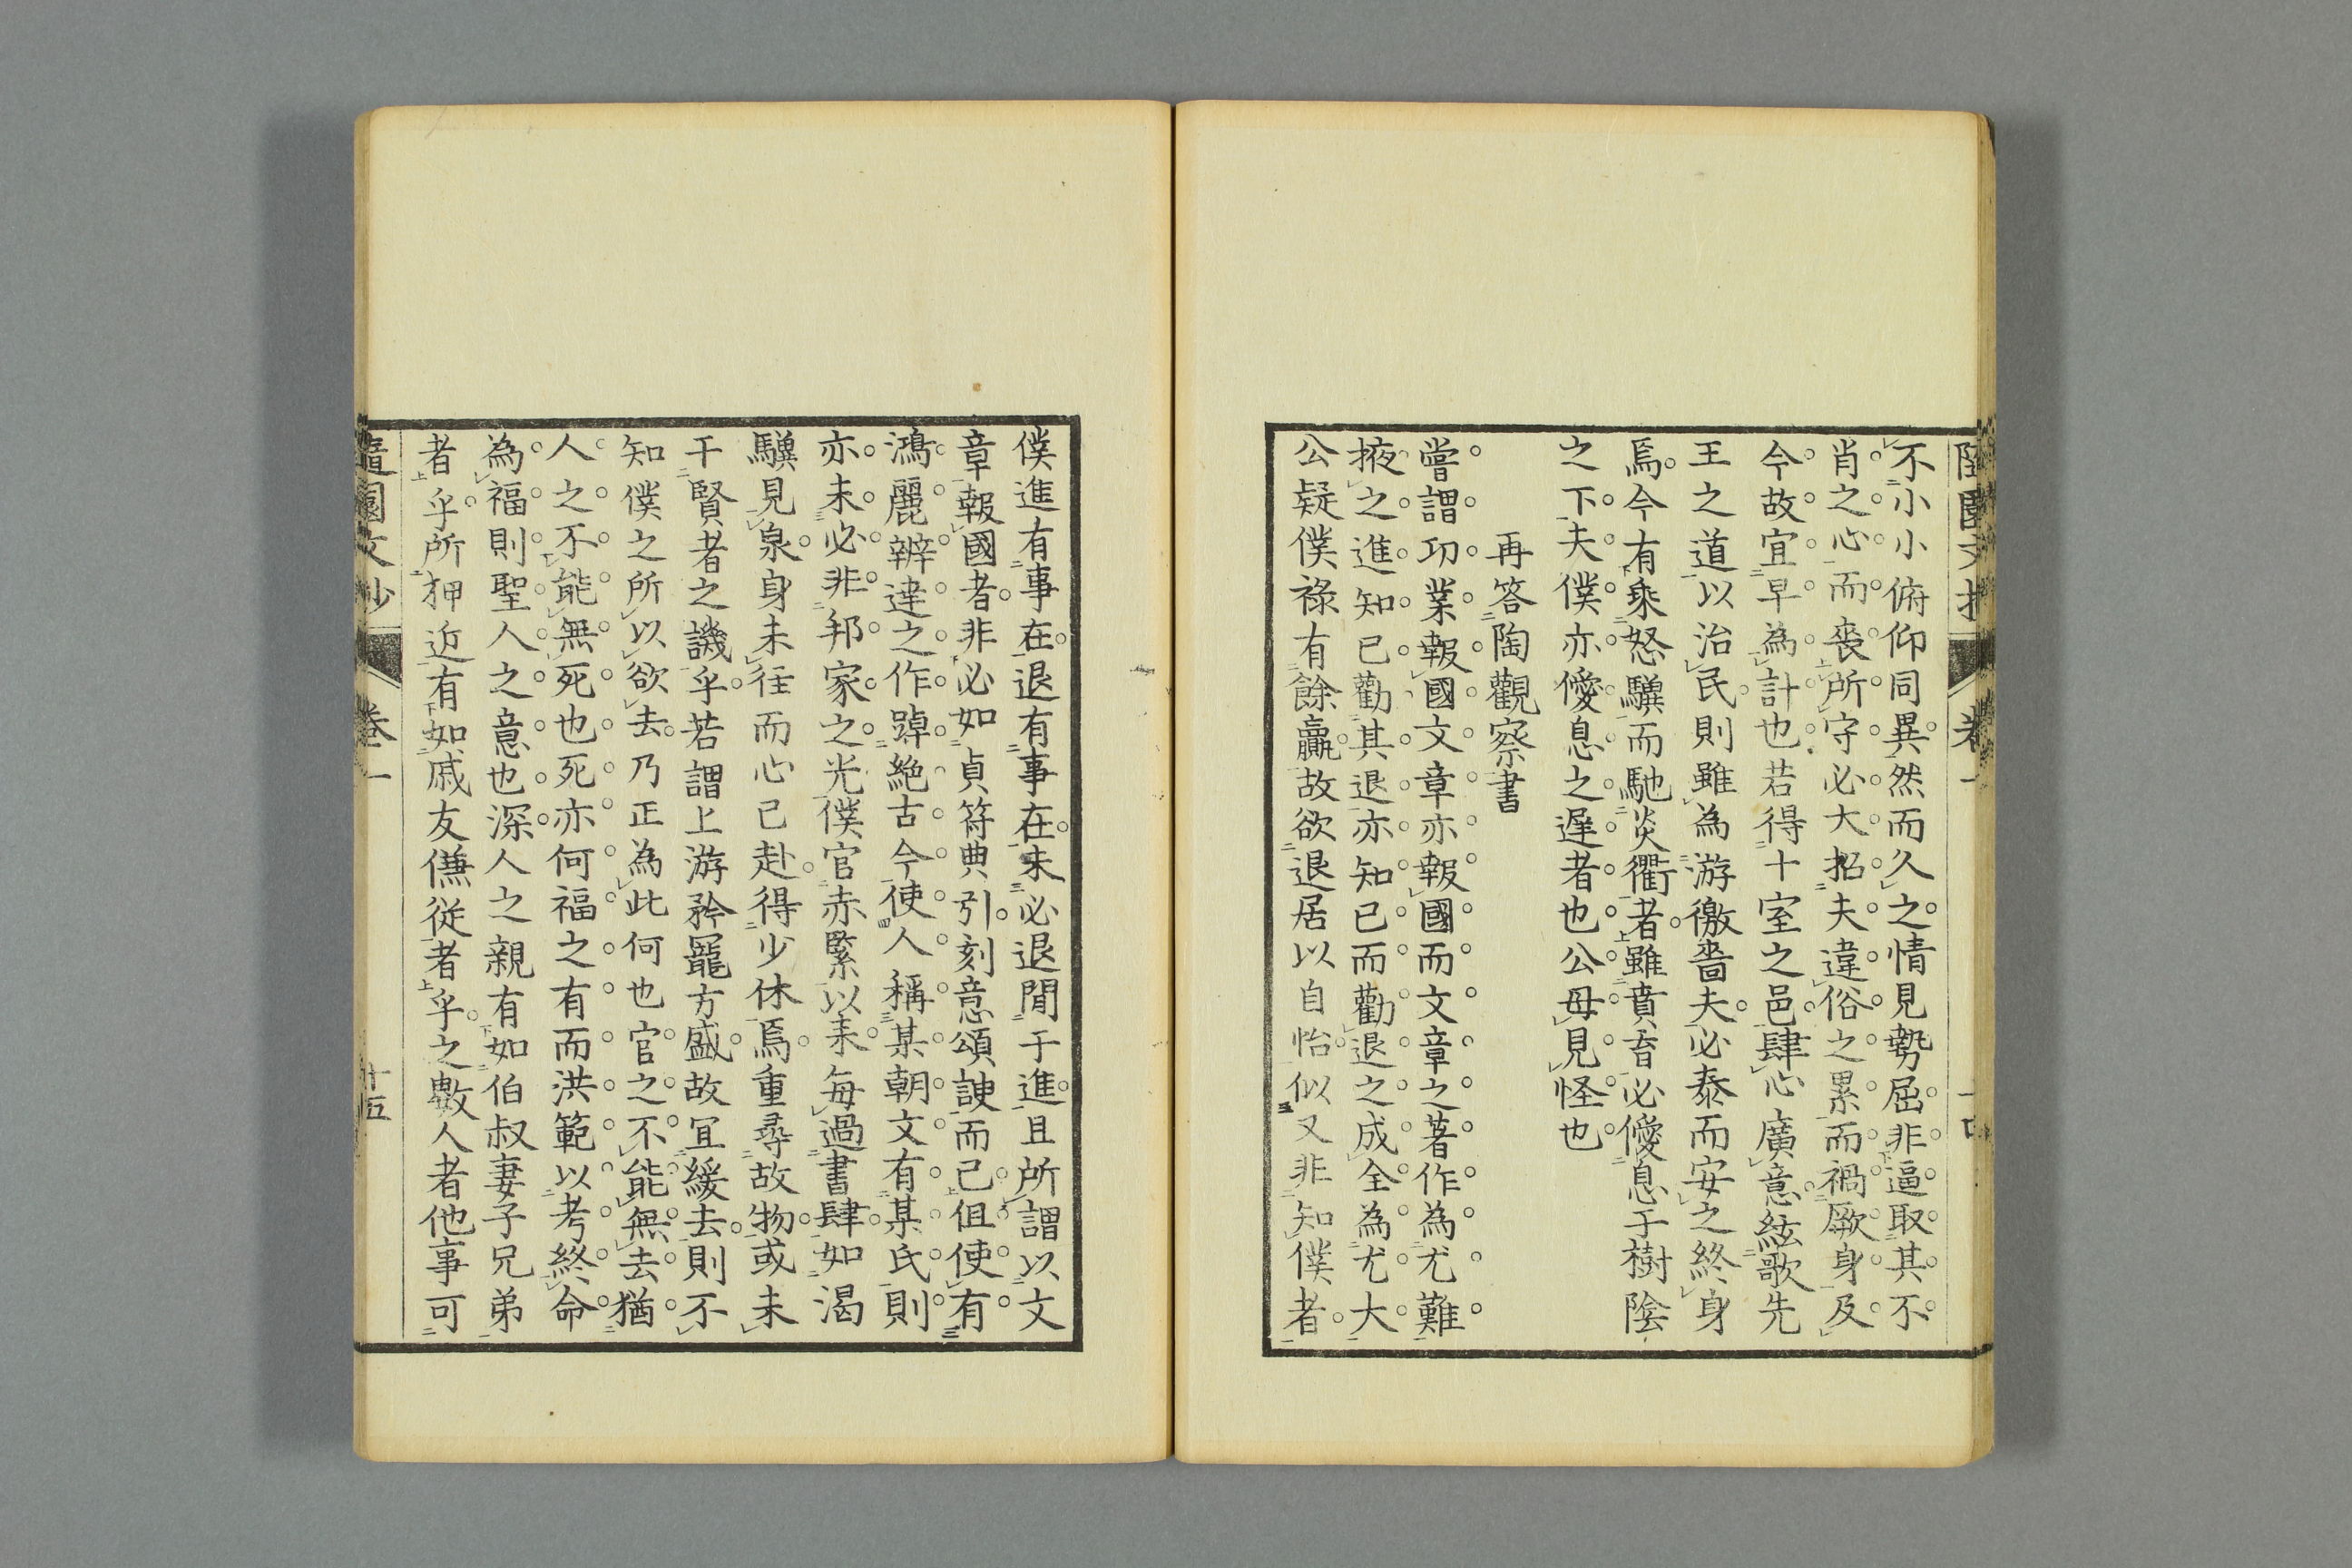 隨園文抄 卷一 十四
不小小俯仰同異然而久之情見勢屈非逼取其不
肖之心而喪所守必大招夫違俗之累而禍厥身及
今故宜早為計也若得十室之邑肆心廣意絃歌先
王之道以治民則雖為游徼嗇夫必泰而安之終身
焉今有乘怒驥而馳炎衢者雖賁育必僾息于樹陰
之下夫僕亦僾息之遲者也公毋見怪也
再答陶觀察書
嘗謂功業報國文章亦報國而文章之著作為尤難
掖之進知己勸其退亦知己而勸退之成全為尤大
公疑僕祿有餘贏故欲退居以自怡似又非知僕者
僕進有事在退有事在未必退閒于進且所謂以文
章報國者非必如貞符典引刻意頌諛而已但使有
鴻麗辨達之作踔絕古今使人稱某朝文有某氏則
亦未必非邦家之光僕官赤緊以來每過書肆如渴
驥見泉身未往而心已赴得少休焉重尋故物或未
干賢者之譏乎若謂上游矜寵方盛故宜緩去則不
知僕之所以欲去乃正為此何也官之不能無去猶
人之不能無死也死亦何福之有而洪範以考終命
為福則聖人之意也深人之親有如伯叔妻子兄弟
者乎所狎近有如戚友傔從者乎之數人者他事可
隨園文抄 卷一 十五